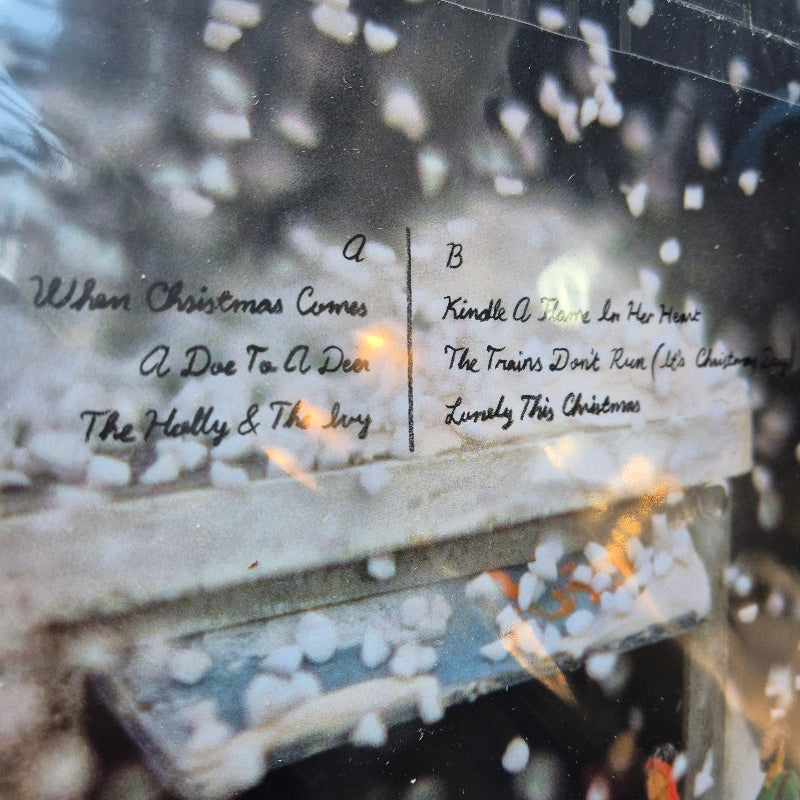 A
When Christmas Comes
A Doe To A Deer
The Holly & The Ivy
B
Kindle A Flame In Her Heart
The Trains Don't Run (It's Christmas Day)
Lonely This Christmas